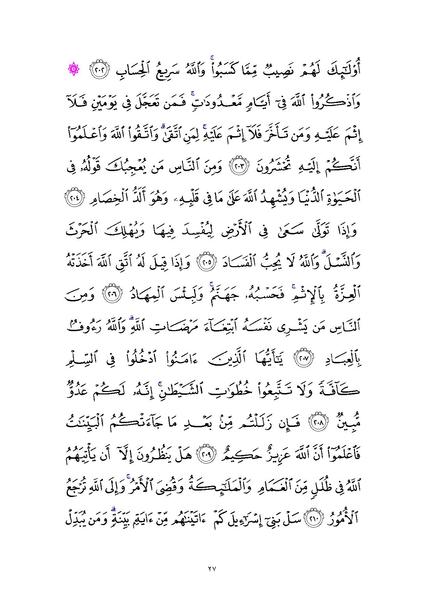 أُو۟لَٰٓئِكَ لَهُمْ نَصِيبٌ مِّمَّا كَسَبُوا۟ۚ وَٱللَّهُ سَرِيعُ ٱلْحِسَابِ ﴿٢٠٢﴾ ۞
وَٱذْكُرُوا۟ ٱللَّهَ فِىٓ أَيَّامٍ مَّعْدُودَٰتٍۚ فَمَن تَعَجَّلَ فِى يَوْمَيْنِ فَلَآ
إِثْمَ عَلَيْهِ وَمَن تَأَخَّرَ فَلَآ إِثْمَ عَلَيْهِۚ لِمَنِ ٱتَّقَىٰۗ وَٱتَّقُوا۟ ٱللَّهَ وَٱعْلَمُوٓا۟
أَنَّكُمْ إِلَيْهِ تُحْشَرُونَ ﴿٢٠٣﴾ وَمِنَ ٱلنَّاسِ مَن يُعْجِبُكَ قَوْلُهُۥ فِى
ٱلْحَيَوٰةِ ٱلدُّنْيَا وَيُشْهِدُ ٱللَّهَ عَلَىٰ مَا فِى قَلْبِهِۦ وَهُوَ أَلَدُّ ٱلْخِصَامِ ﴿٢٠٤﴾
وَإِذَا تَوَلَّىٰ سَعَىٰ فِى ٱلْأَرْضِ لِيُفْسِدَ فِيهَا وَيُهْلِكَ ٱلْحَرْثَ
وَٱلنَّسْلَۗ وَٱللَّهُ لَا يُحِبُّ ٱلْفَسَادَ ﴿٢٠٥﴾ وَإِذَا قِيلَ لَهُ ٱتَّقِ ٱللَّهَ أَخَذَتْهُ
ٱلْعِزَّةُ بِٱلْإِثْمِۚ فَحَسْبُهُۥ جَهَنَّمُۚ وَلَبِئْسَ ٱلْمِهَادُ ﴿٢٠٦﴾ وَمِنَ
ٱلنَّاسِ مَن يَشْرِى نَفْسَهُ ٱبْتِغَآءَ مَرْضَاتِ ٱللَّهِۗ وَٱللَّهُ رَءُوفٌۢ
بِٱلْعِبَادِ ﴿٢٠٧﴾ يَٰٓأَيُّهَا ٱلَّذِينَ ءَامَنُوا۟ ٱدْخُلُوا۟ فِى ٱلسِّلْمِ
كَآفَّةً وَلَا تَتَّبِعُوا۟ خُطُوَٰتِ ٱلشَّيْطَٰنِۚ إِنَّهُۥ لَكُمْ عَدُوٌّ
مُّبِينٌ ﴿٢٠٨﴾ فَإِن زَلَلْتُم مِّنۢ بَعْدِ مَا جَآءَتْكُمُ ٱلْبَيِّنَٰتُ
فَٱعْلَمُوٓا۟ أَنَّ ٱللَّهَ عَزِيزٌ حَكِيمٌ ﴿٢٠٩﴾ هَلْ يَنظُرُونَ إِلَّآ أَن يَأْتِيَهُمُ
ٱللَّهُ فِى ظُلَلٍ مِّنَ ٱلْغَمَامِ وَٱلْمَلَٰٓئِكَةُ وَقُضِىَ ٱلْأَمْرُۚ وَإِلَى ٱللَّهِ تُرْجَعُ
ٱلْأُمُورُ ﴿٢١٠﴾ سَلْ بَنِىٓ إِسْرَٰٓءِيلَ كَمْ ءَاتَيْنَٰهُم مِّنْ ءَايَةٍۭ بَيِّنَةٍۗ وَمَن يُبَدِّلْ
٢٧